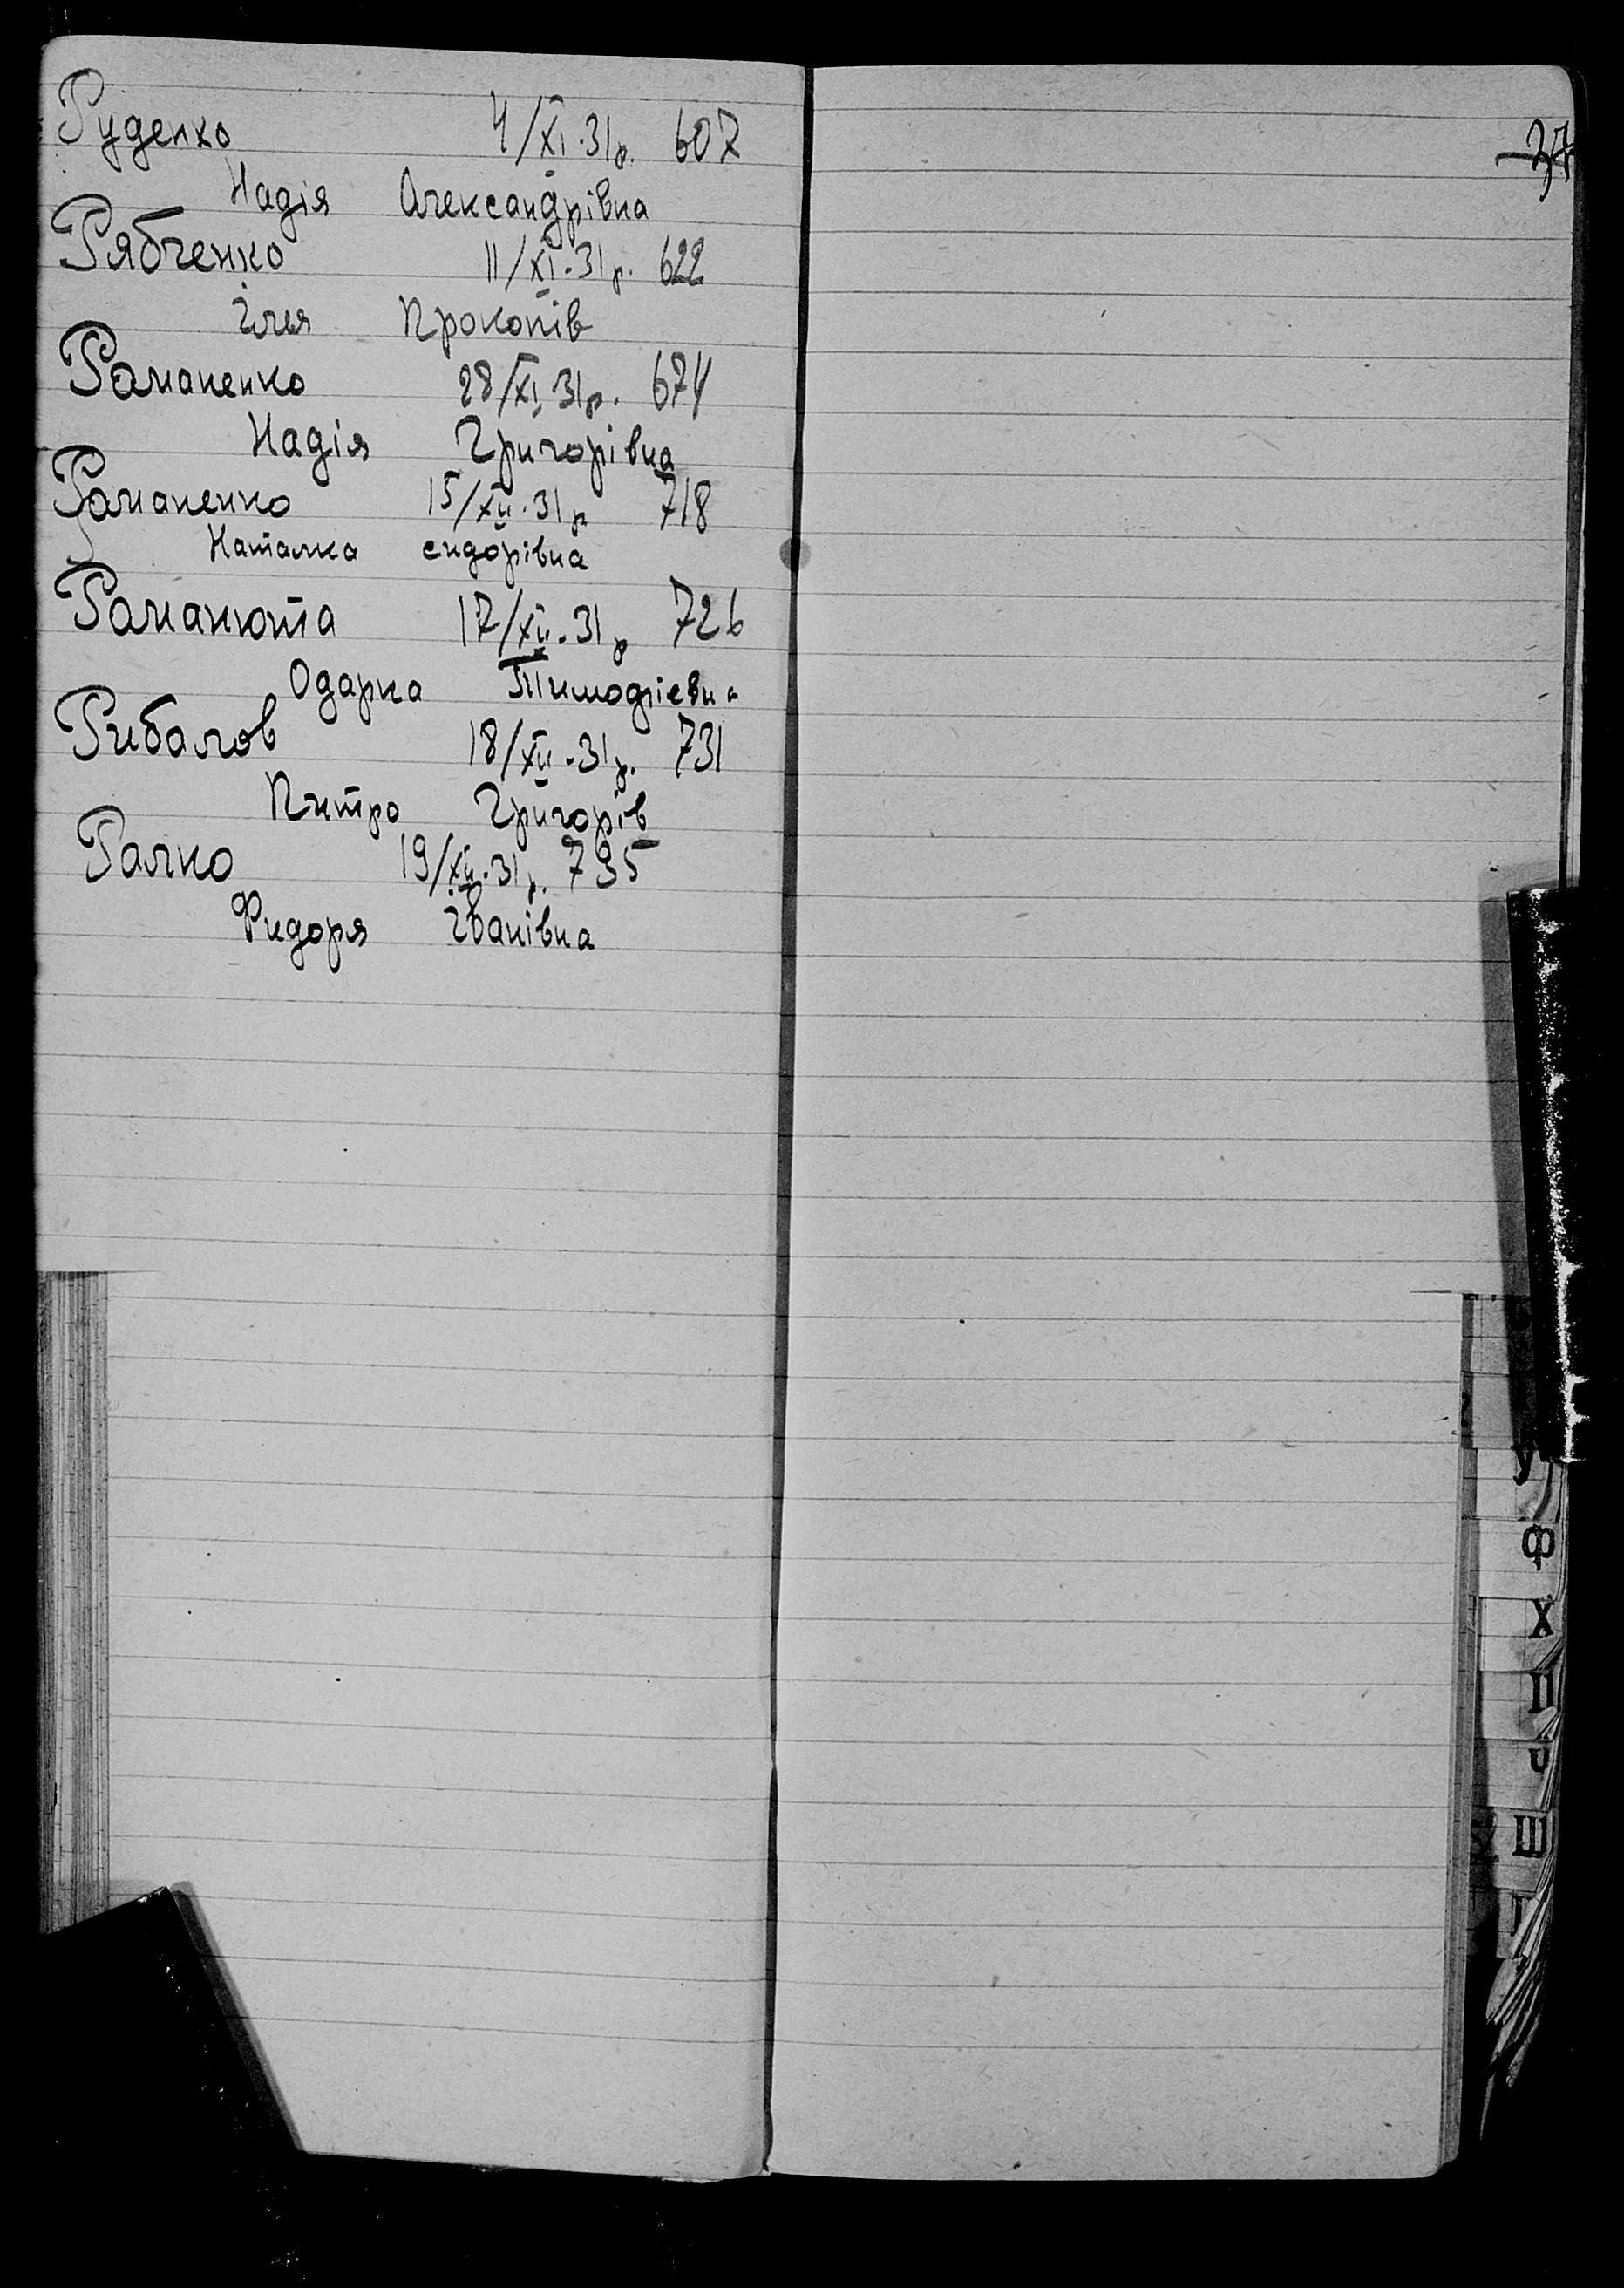 Руденко 4/XI.31р. 607
Надія Олександрівна
Рябченко 11/XI.31р. 622
Ілля Прокопів
Романенко 28/XI.31р. 674
Надія Григорівна
Романенко 15/XII.31р 718
Наталка сидорівна
Романюта 17/XII.31р 726
Одарка
Рибалов 18/XII.31р. 731
Питро Григорів
Ралко 19/XII.31р. 735
Фидоря Іванівна
37
У
Ф
Х
Ц
Ч
Ш